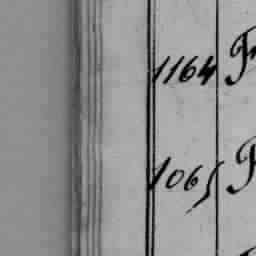 1164
1065